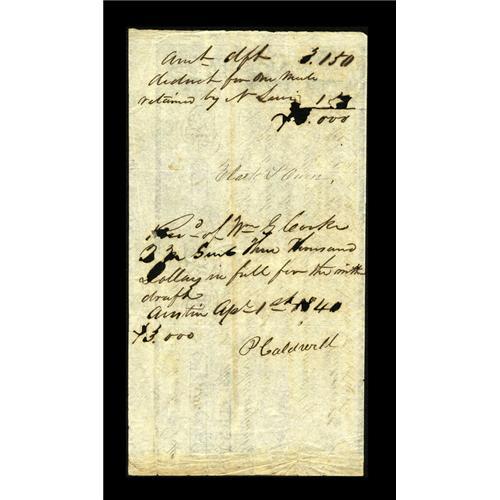 Amt dft 3.150
deduct for one Mule
retained by N Lewis 150
$3.000
Clark L Owen
Recd of Wm G Cooke
2 M Genl Three Thousand
Dollars in full for the with
draft
Austin Apl 1st 1840
$3.000
P Caldwell